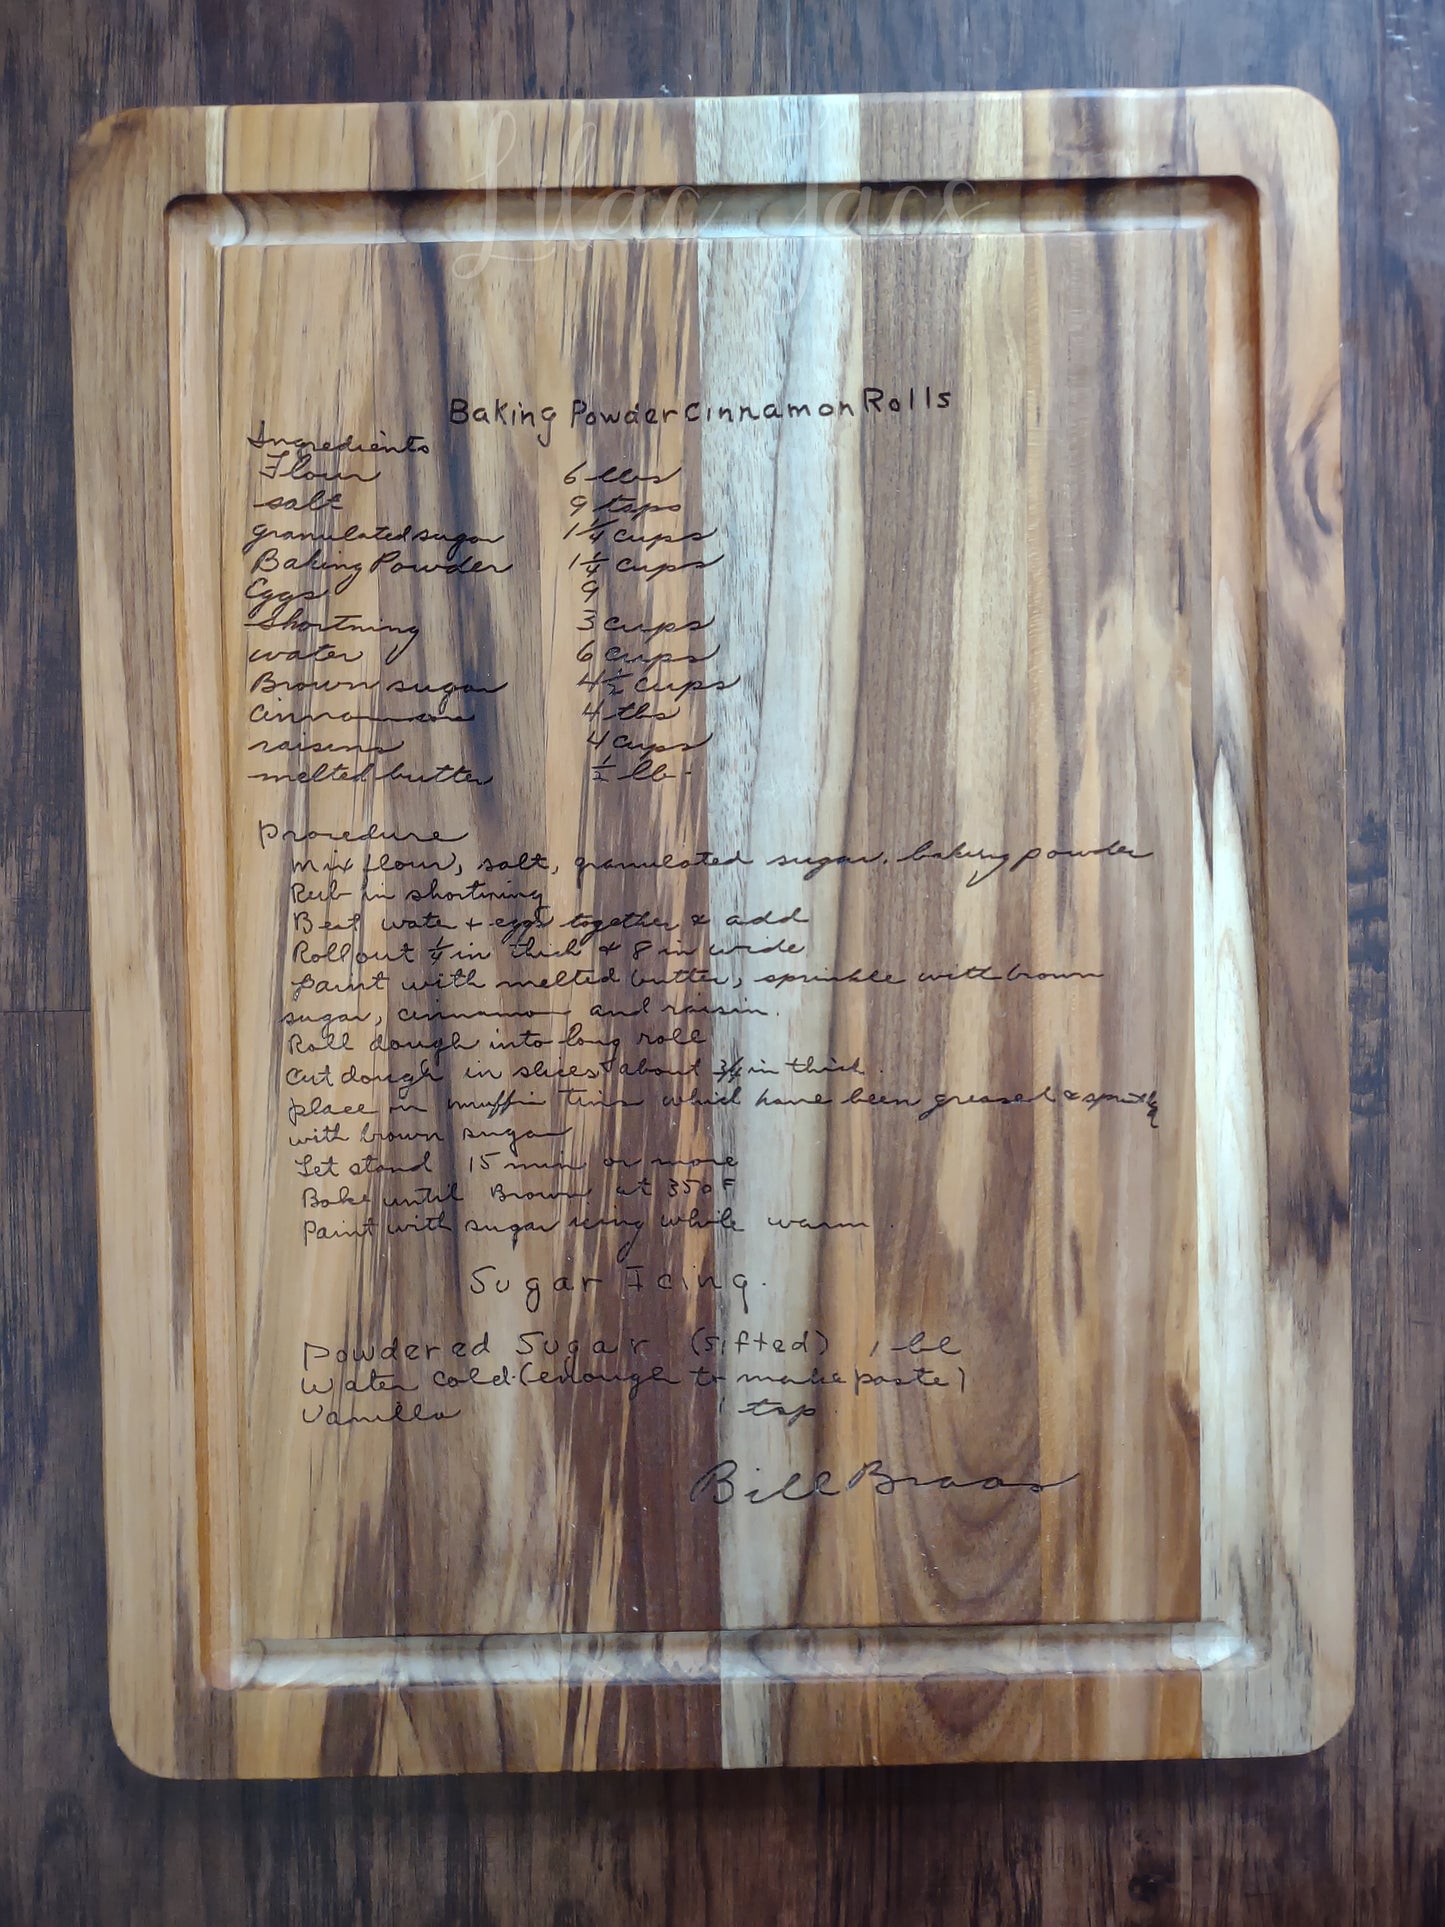 Lilac Jacs
Baking Powder Cinnamon Rolls
Ingredients
Flour 6 lbs
salt 9 tsps
granulated sugar 1 1/4 cups
Baking Powder 1 1/4 cups
Eggs 9
Shortning 3 cups
water 6 cups
Brown sugar 4 1/2 cups
cinnamon 4 tbs
raisins 4 cups
melted butter 1/2 lb.
Procedure
Mix flour, salt, granulated sugar, baking powder
Rub in shortning
Beat water + eggs together & add
Roll out 1/4 in thick & 8 in wide
Paint with melted butter, sprinkle with brown
sugar, cinnamon and raisin.
Roll dough into long roll
Cut dough in slices about 3/4 in thick.
place in muffin tins which have been greased &
with brown sugar
Let stand 15 min or more
Bake until Brown at 350 F
Paint with sugar icing while warm.
Sugar Icing.
Powdered Sugar (sifted) 1 lb
Water cold (enough to make paste)
Vanilla 1 tsp.
Bill Braas